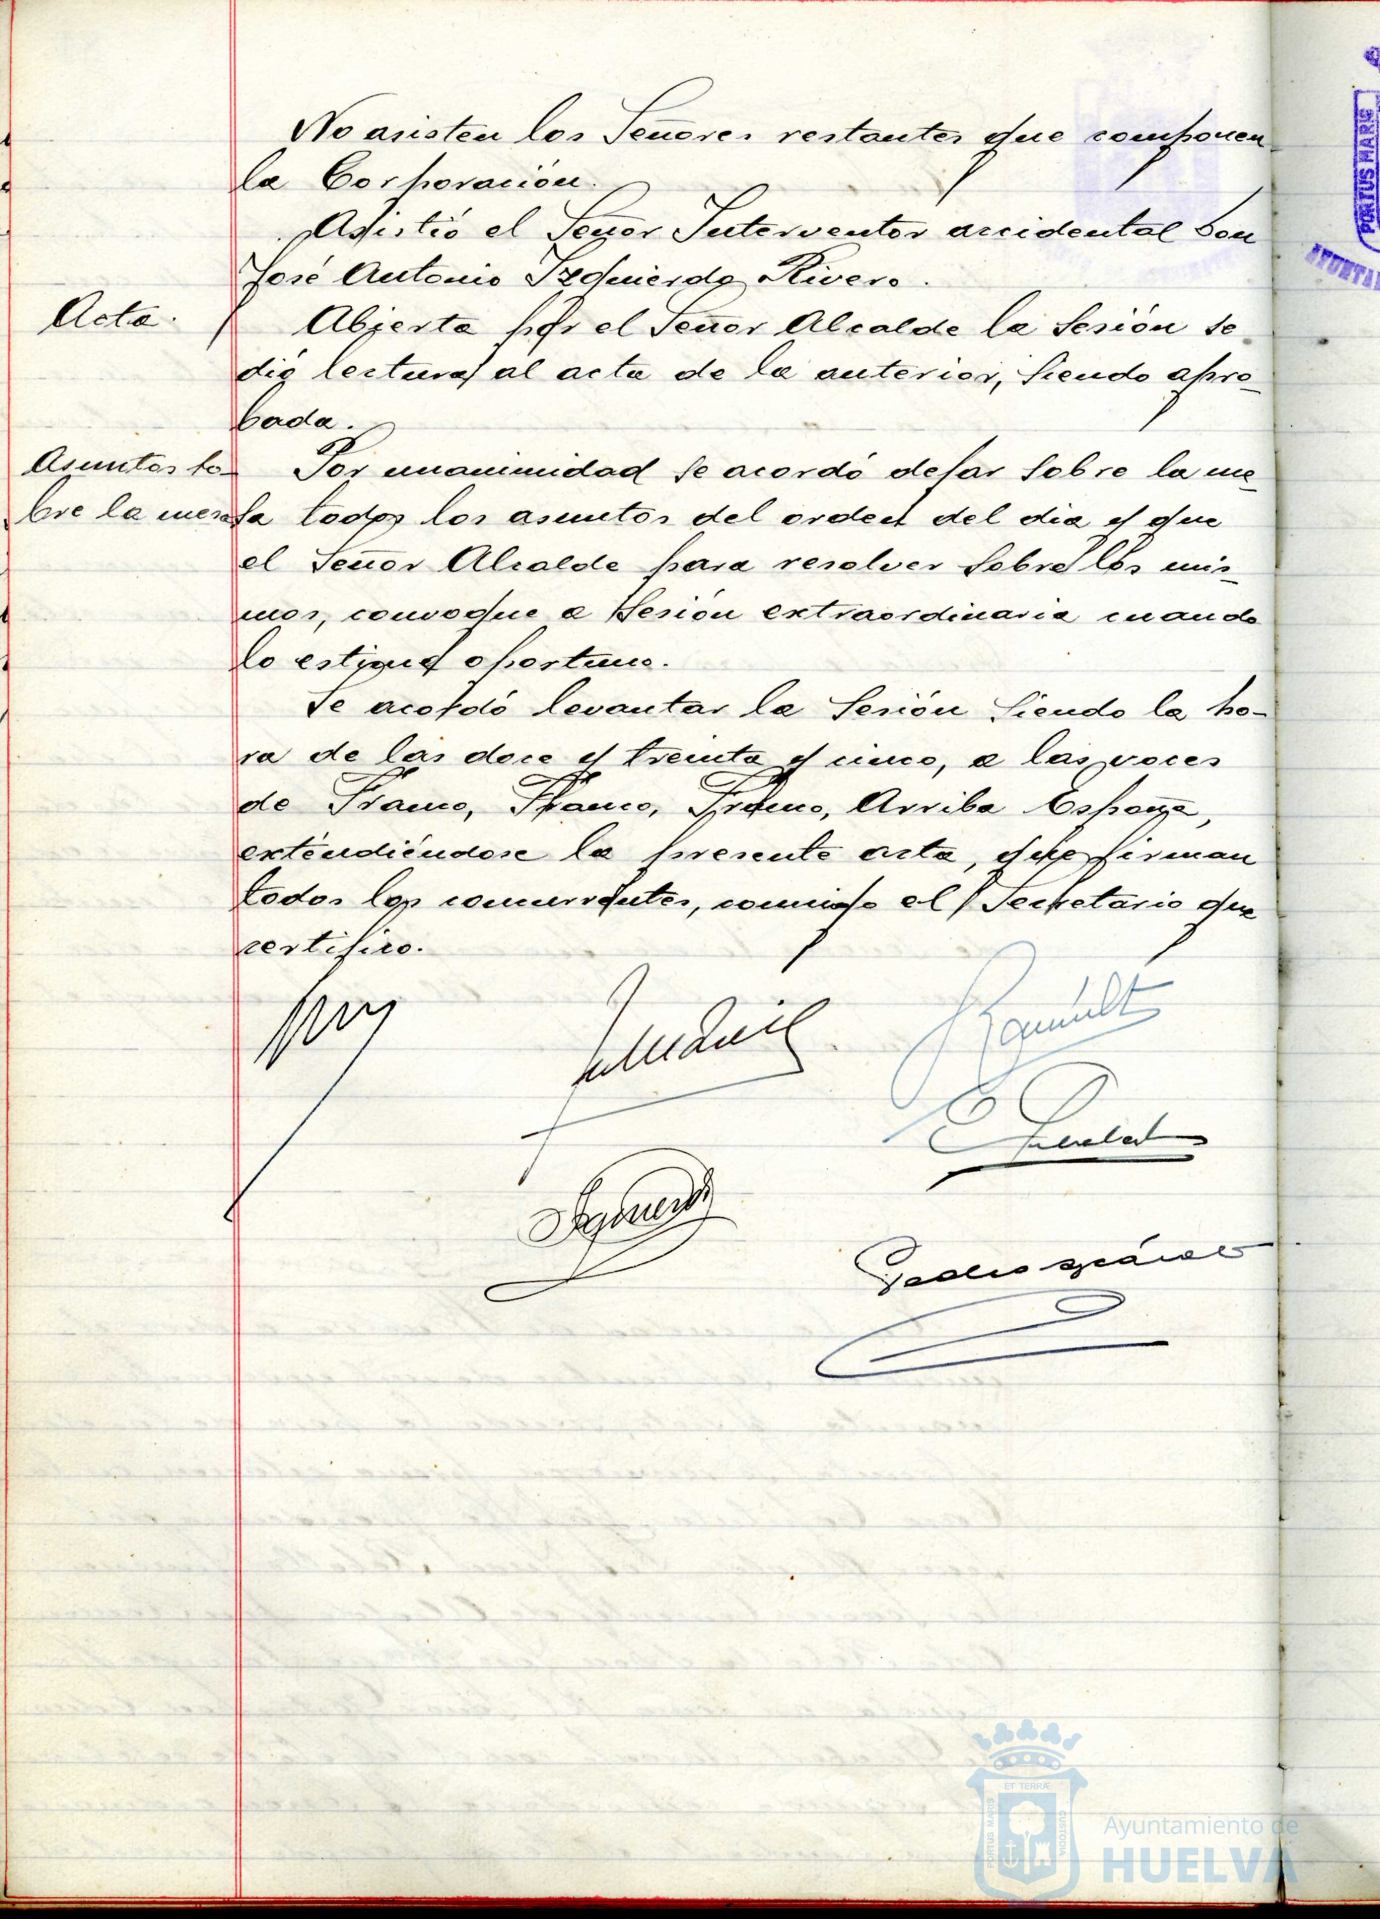 No asisten los Señores restantes que componen
la Corporación.
Asistió el Señor Interventor accidental Don
José Antonio Izquierdo Rivero.
Acta.
Abierta por el Señor Alcalde la Sesión se
dió lectura al acta de la anterior, siendo apro-
bada.
Asuntos so-
bre la mesa
Por unanimidad se acordó dejar sobre la me-
sa todos los asuntos del orden del dia y que
el Señor Alcalde para resolver sobre los mis-
mos, convoque a Sesión extraordinaria cuando
lo estime oportuno.
Se acordó levantar la Sesión siendo la ho-
ra de las doce y treinta y cinco, a las voces
de Franco, Franco, Franco, Arriba España,
extendiéndose la presente acta, que firman
todos los concurrentes, conmigo el Secretario que
certifico.
PORTUS MARIS
ET TERRÆ
PORTUS MARIS
CUSTODIA
Ayuntamiento de
HUELVA